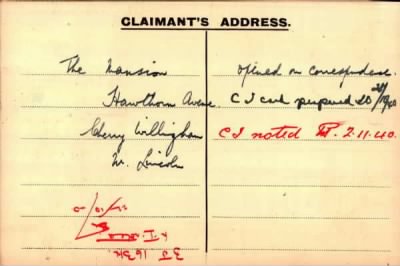 CLAIMANT'S ADDRESS.
The Mansion
Hawthorn Avenue
Cherry Willingham
Nr. Lincoln
Opened on correspondence.
C I card prepared
C I noted 2.11.40.